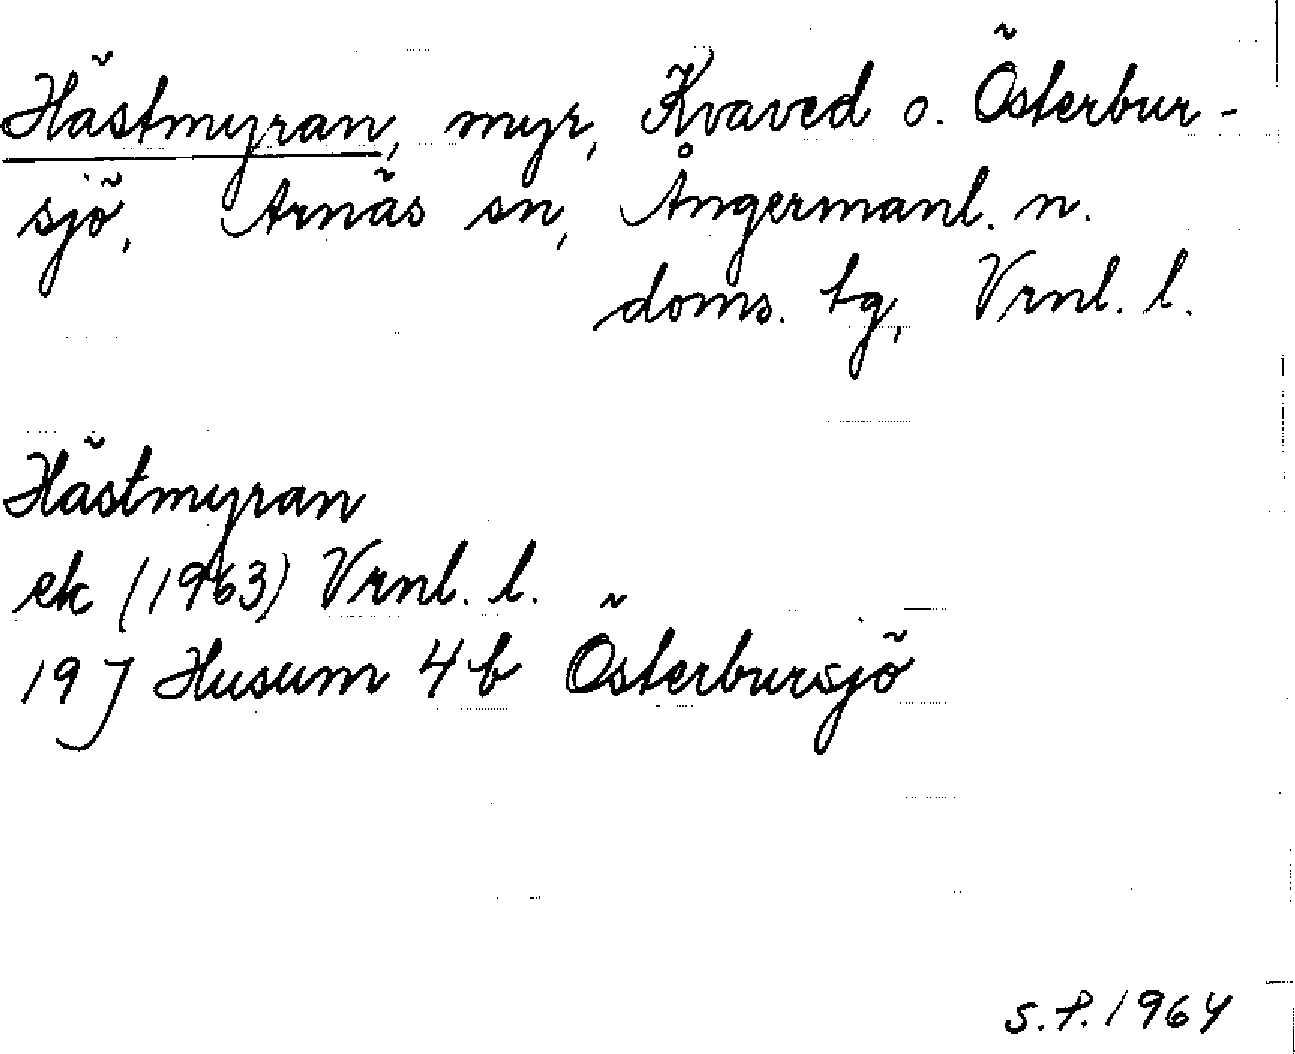 Hästmyran, myr, Kvaved o. Österbur-
sjö, Arnäs sn, Ångermanl. n.
doms. tg, Vrnl. l.
Hästmyran
ek (1963) Vrnl. l.
19 J Husum 4 b Österbursjö
S.P. 1964